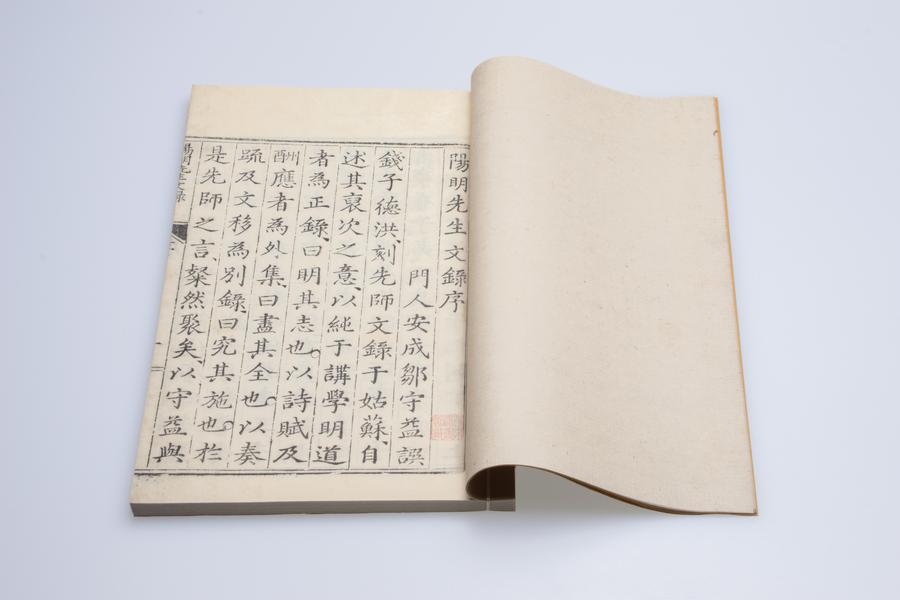 陽明先生文錄序
門人安成鄒守益譔
錢子德洪刻先師文錄于姑蘇自
述其裒次之意以純于講學明道
者為正錄曰明其志也以詩賦及
酬應者為外集曰盡其全也以奏
疏及文移為別錄曰究其施也於
是先師之言粲然聚矣以守益與
陽明先生文錄